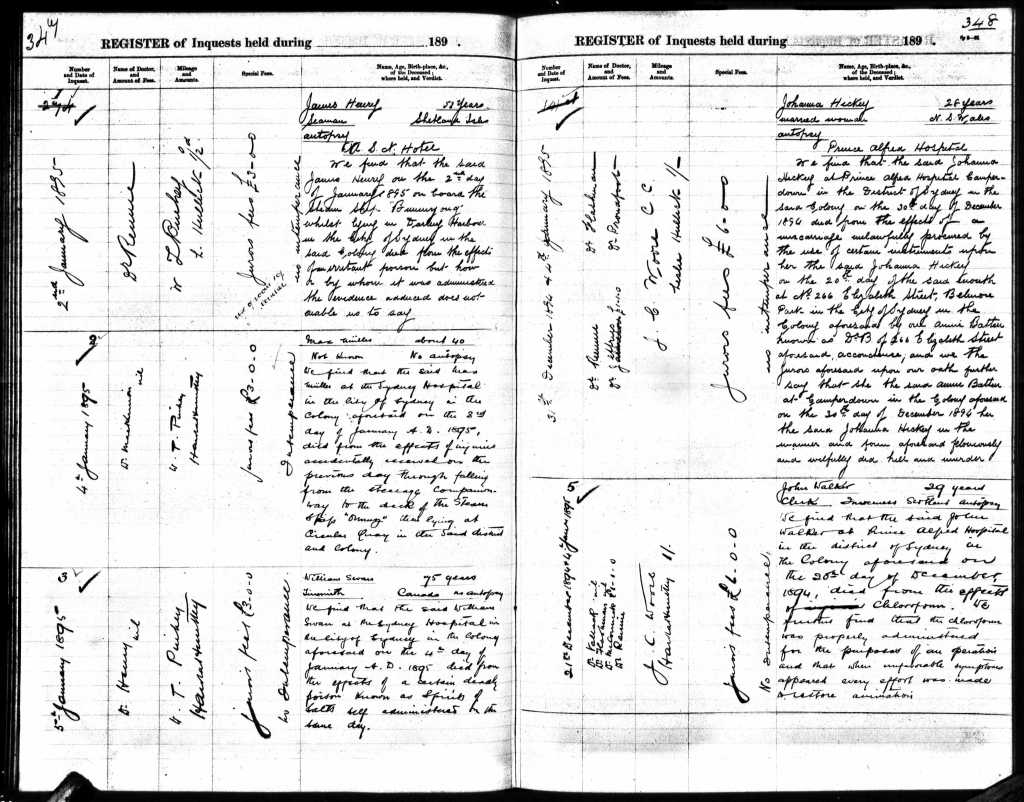 347
REGISTER of Inquests held during 189 .
Number and Date of Inquest.
Name of Doctor, and Amount of Fees.
Mileage and Amounts.
Special Fees.
Name, Age, Birth-place, &c., of the Deceased; where held, and Verdict.
2nd January 1895
Dr Rennie
W L
L. Hullick 1/2d
Jurors fees £3-0-0
no intemperance
James Henry 50 Years
Seaman Shetland Isles
autopsy
A S N. Hotel
We find that the said
James Henry on the 2nd day
of January 1895 on board the
Steam Ship
whilst lying in Darling Harbour
in the City of Sydney in the
said Colony died from the effects
of an irritant poison but how
or by whom it was administered
the evidence adduced does not
enable us to say
4th January 1895
nil
Jurors fees £3-0-0
Intemperance
Max Miller about 40
Not Known No autopsy
We find that the said Max
Miller at the Sydney Hospital
in the City of Sydney in the
Colony aforesaid on the 3rd
day of January A.D. 1895,
died from the effects of injuries
accidentally received on the
previous day through falling
from the steerage Companion-
way to the deck of the Steam
Ship then lying at
Circular Quay in the said district
and Colony.
3
5th January 1895
Dr. Henry nil
Jurors fees £3-0-0
no Intemperance
William Swan 75 years
Tinsmith Canada no autopsy
We find that the said William
Swan at the Sydney Hospital in
the City of Sydney in the Colony
aforesaid on the 4th day of
January A.D. 1895 died from
the effects of a certain deadly
poison known as Spirits of
Salts self administered on the
same day.
348
REGISTER of Inquests held during 189 .
Number and Date of Inquest.
Name of Doctor, and Amount of Fees.
Mileage and Amounts.
Special Fees.
Name, Age, Birth-place, &c., of the Deceased; where held, and Verdict.
31st December 1894 & 4th January 1895
Dr Rennie
J. C. Woore C. C.
Leslie Hullick 1/-
Jurors fees £6-0-0
no intemperance
Johanna Hickey 28 years
married woman N. S. Wales
autopsy
Prince Alfred Hospital
We find that the said Johanna
Hickey at Prince Alfred Hospital Camper-
down in the District of Sydney in the
said Colony on the 30th day of December
1894 died from the effects of a
miscarriage unlawfully procured by
the use of certain instruments upon
her the said Johanna Hickey
on the 20th day of the said month
at No. 266 Elizabeth Street, Belmore
Park in the City of Sydney in the
Colony aforesaid by one Annie Batten
known as Dr B of 266 Elizabeth Street
aforesaid, accoucheuse, and we the
Jurors aforesaid upon our oath further
say that she the said Annie Batten
at Camperdown in the Colony aforesaid
on the 30th day of December 1894 her
the said Johanna Hickey in the
manner and form aforesaid feloniously
and wilfully did kill and murder
5
21st December 1894 & 4th Jany 1895
Dr. Rennie
J. C. Woore
Jurors fees £6.0-0
No Intemperance
John Walker 29 years
Clerk Inverness Scotland autopsy
We find that the said John
Walker at Prince Alfred Hospital
in the district of Sydney in
the Colony aforesaid on
the 20th day of December
1894, died from the effects
of Chloroform. We
further find that the chloroform
was properly administered
for the purposes of an operation
and that when unfavorable symptoms
appeared every effort was made
to restore animation